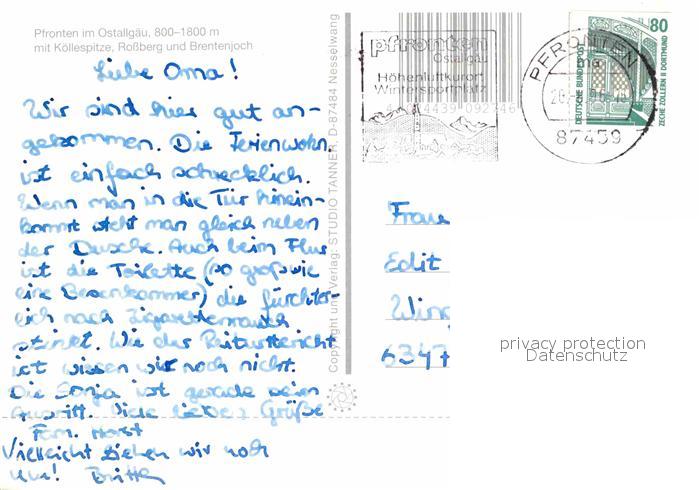 Pfronten im Ostallgäu, 800–1800 m
mit Köllespitze, Roßberg und Brentenjoch
Liebe Oma!
Wir sind hier gut an-
gekommen. Die Ferienwohn.
ist einfach schrecklich.
Wenn man in die Tür hinein-
kommt steht man gleich neben
der Dusche. Auch beim Flur
ist die Toilette (so groß wie
eine Besenkammer) die fürchter-
lich nach Zigarettenrauch
stinkt. Wie der Reitunterricht
ist wissen wir noch nicht.
Die Sonja ist gerade beim
Ausritt. Viele liebe Grüße
Fam. Horst
Vielleicht ziehen wir noch
um! Britta
Copyright und Verlag: STUDIO TANNER, D-87484 Nesselwang
4439 092746
pfronten
Ostallgäu
Höhenluftkurort
Wintersportplatz
PFRONTEN
87459
80
DEUTSCHE BUNDESPOST
ZECHE ZOLLERN II DORTMUND
Frau
Edit
Wing
6347
privacy protection
Datenschutz